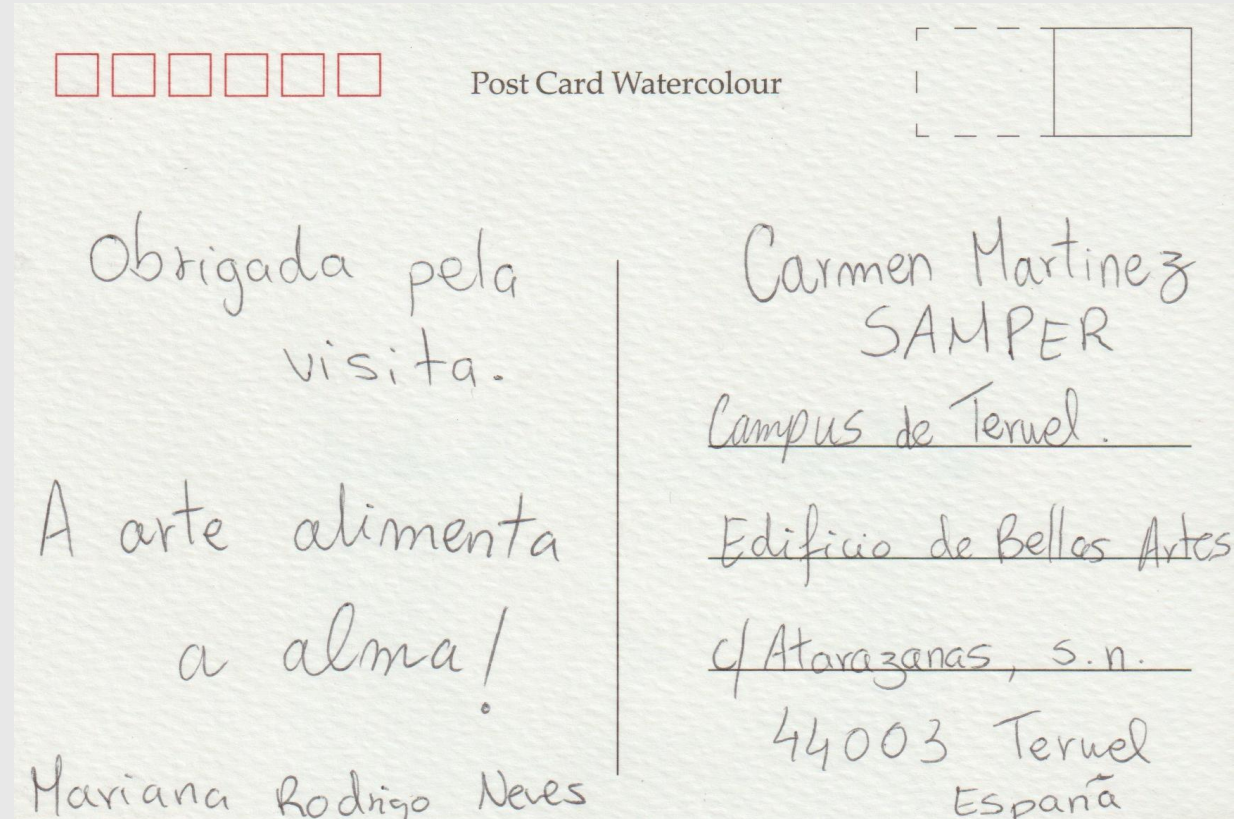 Post Card Watercolour
Obrigada pela
visita.
A arte alimenta
a alma!
Mariana Rodrigo Neves
Carmen Martinez
SAMPER
Campus de Teruel.
Edificio de Bellas Artes
c/ Atarazanas, s.n.
44003 Teruel
España